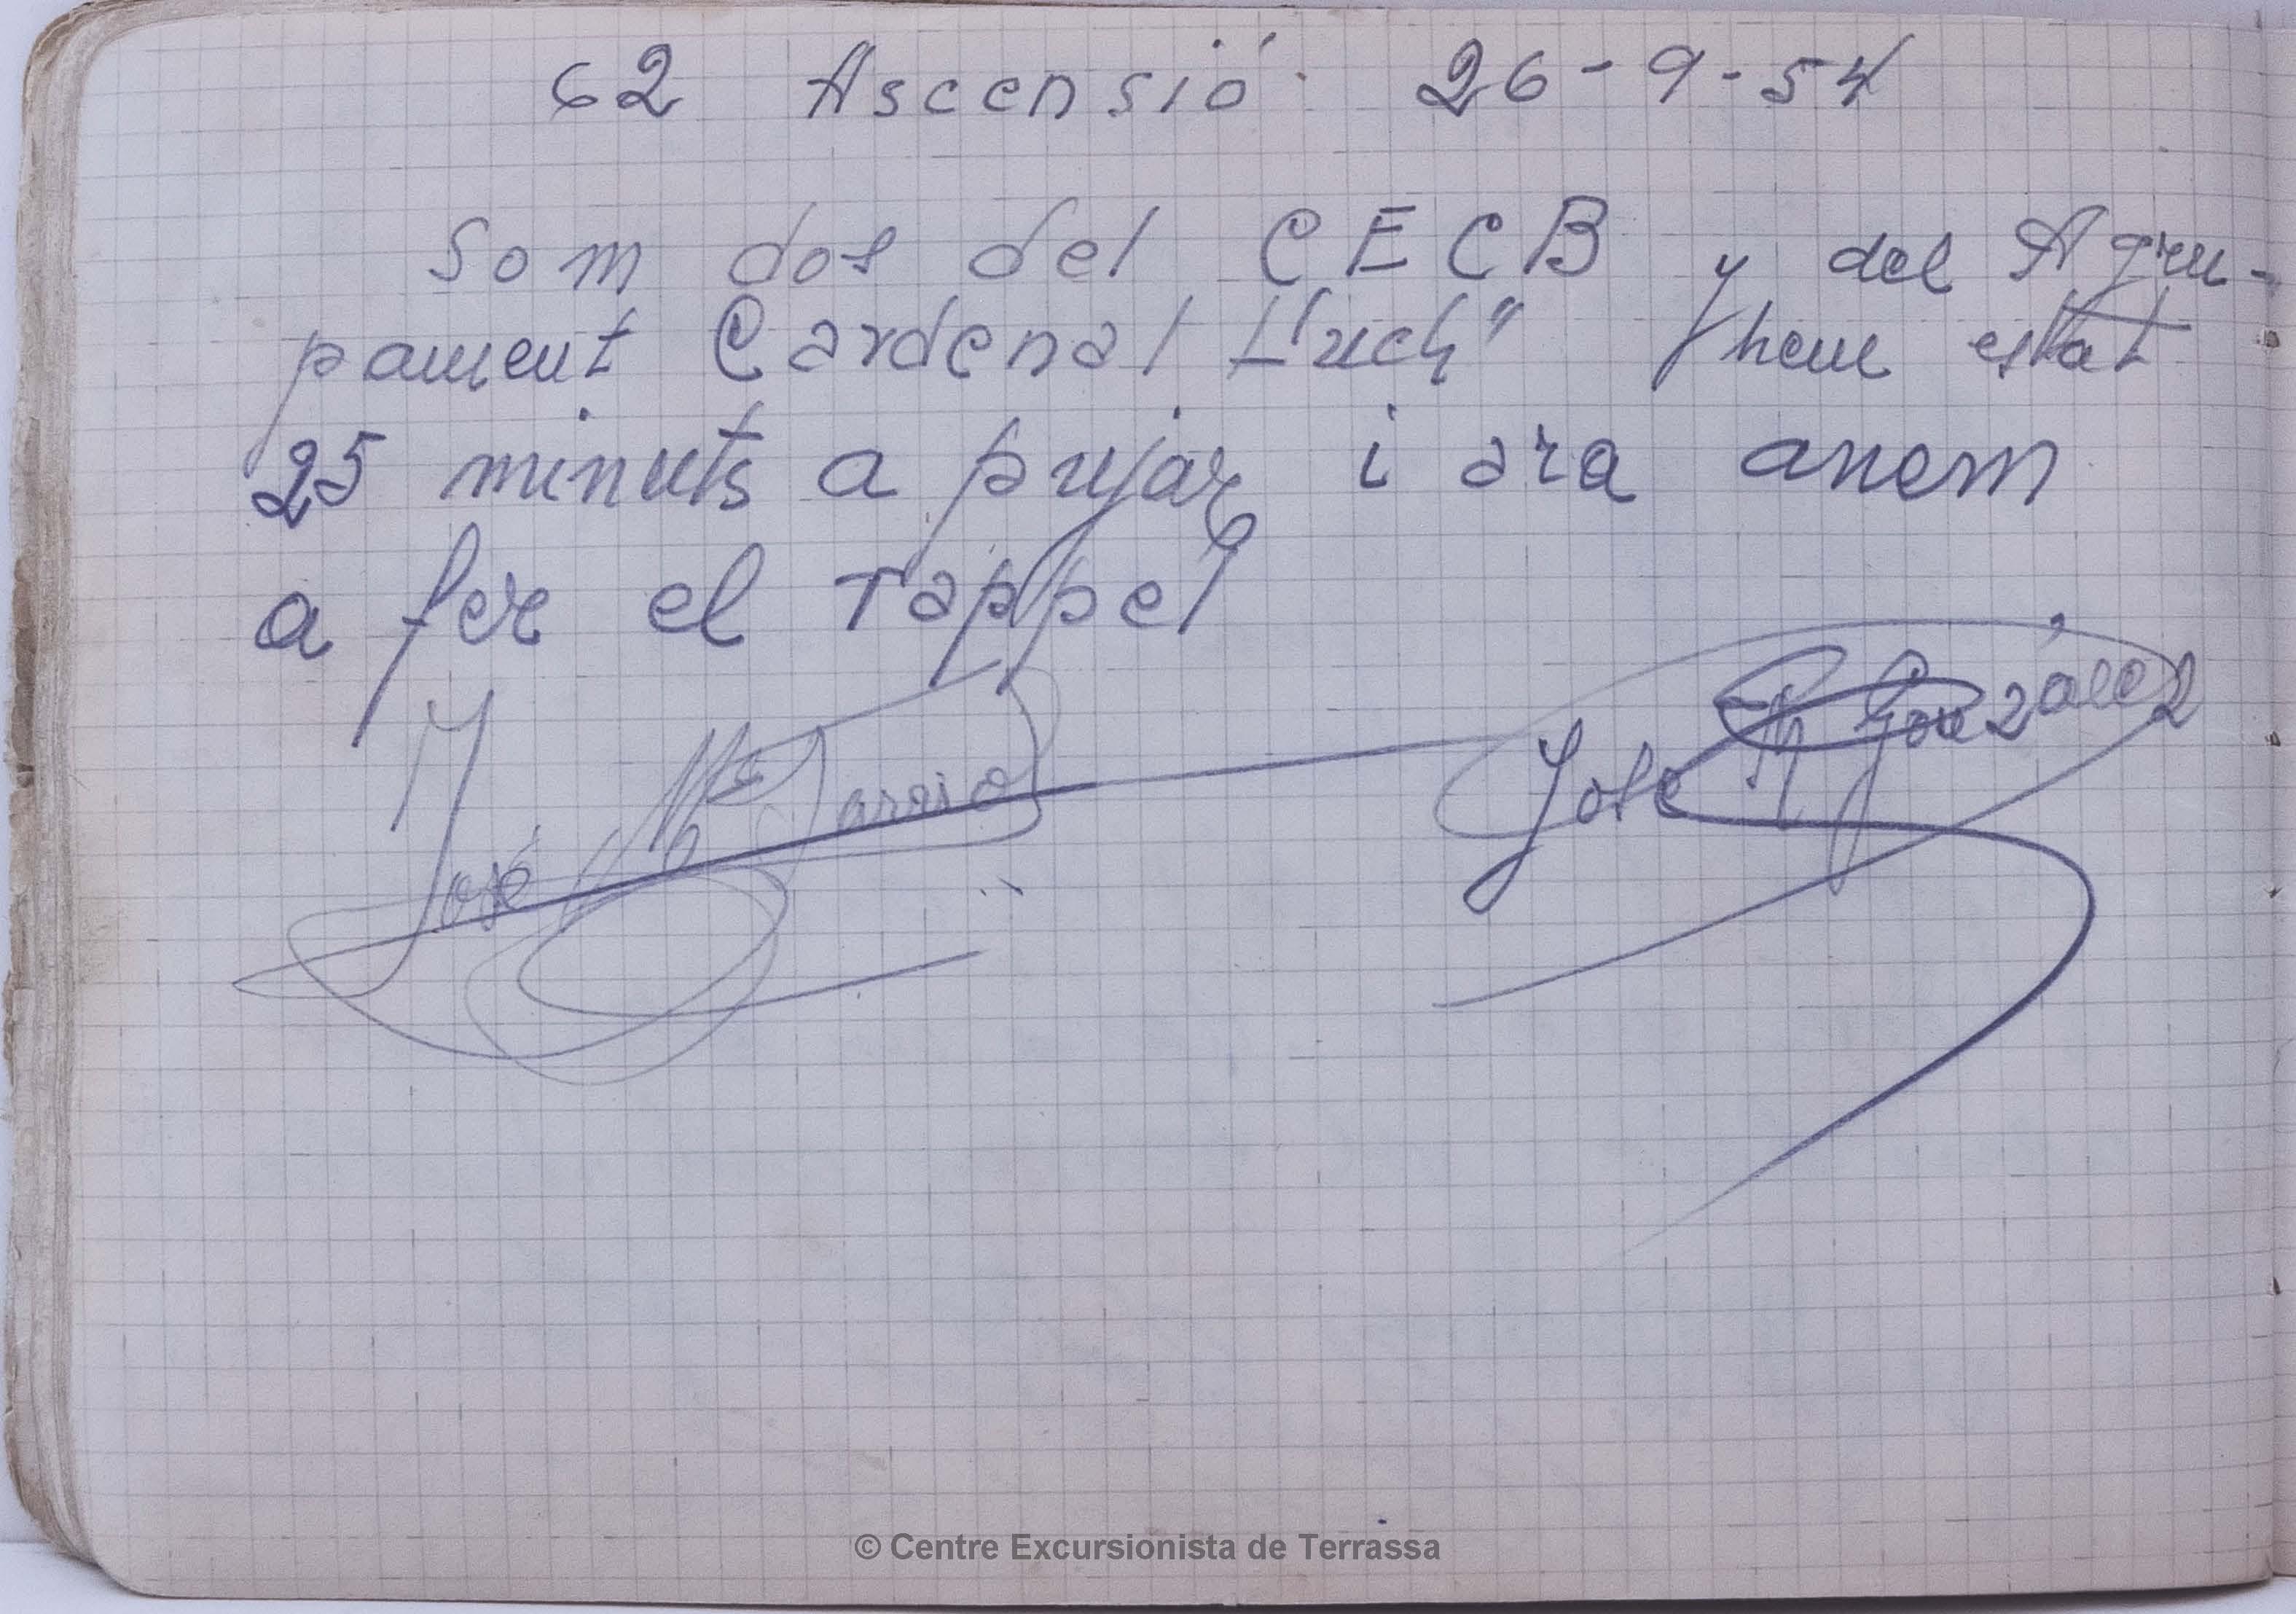 62 Ascensió 26-9-54
Som dos del CECB y del Agru-
pament Cardenal Lluch" y hem estat
25 minuts a pujar i ara anem
a fer el rappel
José Mª Barrio
José M González
© Centre Excursionista de Terrassa